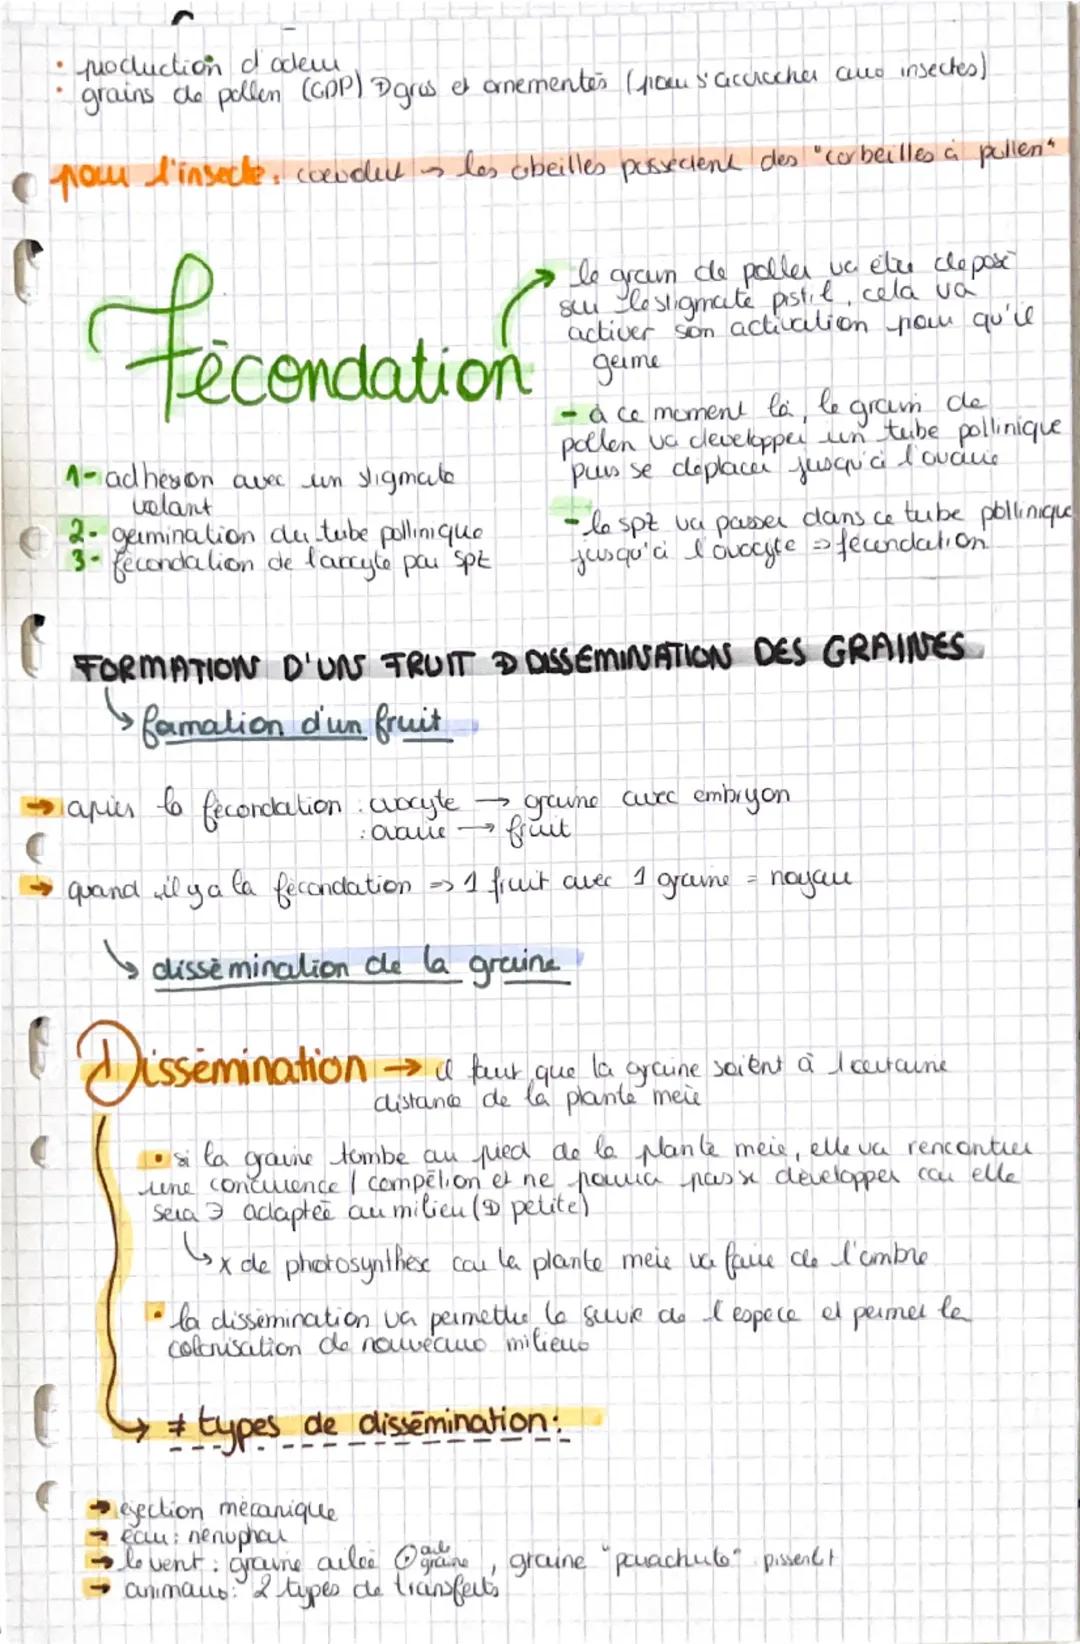 • production d'odeur
• grains de pollen (GDP) gros et ornementés (pour s'accrocher aux insectes)
pour l'insecte : conduit → les abeilles possèdent des "corbeilles à pollen"
Fécondation
le grain de pollen va être déposé
sur le stigmate pistil, cela va
activer son activation pour qu'il
germe
- à ce moment là, le grain de
pollen va développer un tube pollinique
puis se déplacer jusqu'à l'ovaire
- le spz va passer dans ce tube pollinique
jusqu'à l'ovocyte => fécondation
1- adhésion avec un stigmate
2- germination du tube pollinique
3- fécondation de l'ovocyte par spz
FORMATION D'UN FRUIT DISSEMINATION DES GRAINES
↳ formation d'un fruit
→ après la fécondation : ovocyte → graine avec embryon
: ovaire → fruit
→ quand il y a la fécondation => 1 fruit avec 1 graine = noyau
↳ dissémination de la graine
Dissémination → il faut que la graine soient à 1 certaine
distance de la plante mère
• si la graine tombe au pied de la plante mère, elle va rencontrer
une concurrence / compétion et ne pourra pas se développer car elle
sera adaptée au milieu ( petite)
↳ x de photosynthèse car la plante mère va faire de l'ombre
• la dissémination va permettre la survie de l'espèce et permet la
colonisation de nouveaux milieux
↳ ≠ types de dissémination :
→ éjection mécanique
→ eau : nénuphar
→ le vent : graine ailée aile graine, graine "parachute" pissenlit
→ animaux : 2 types de transferts